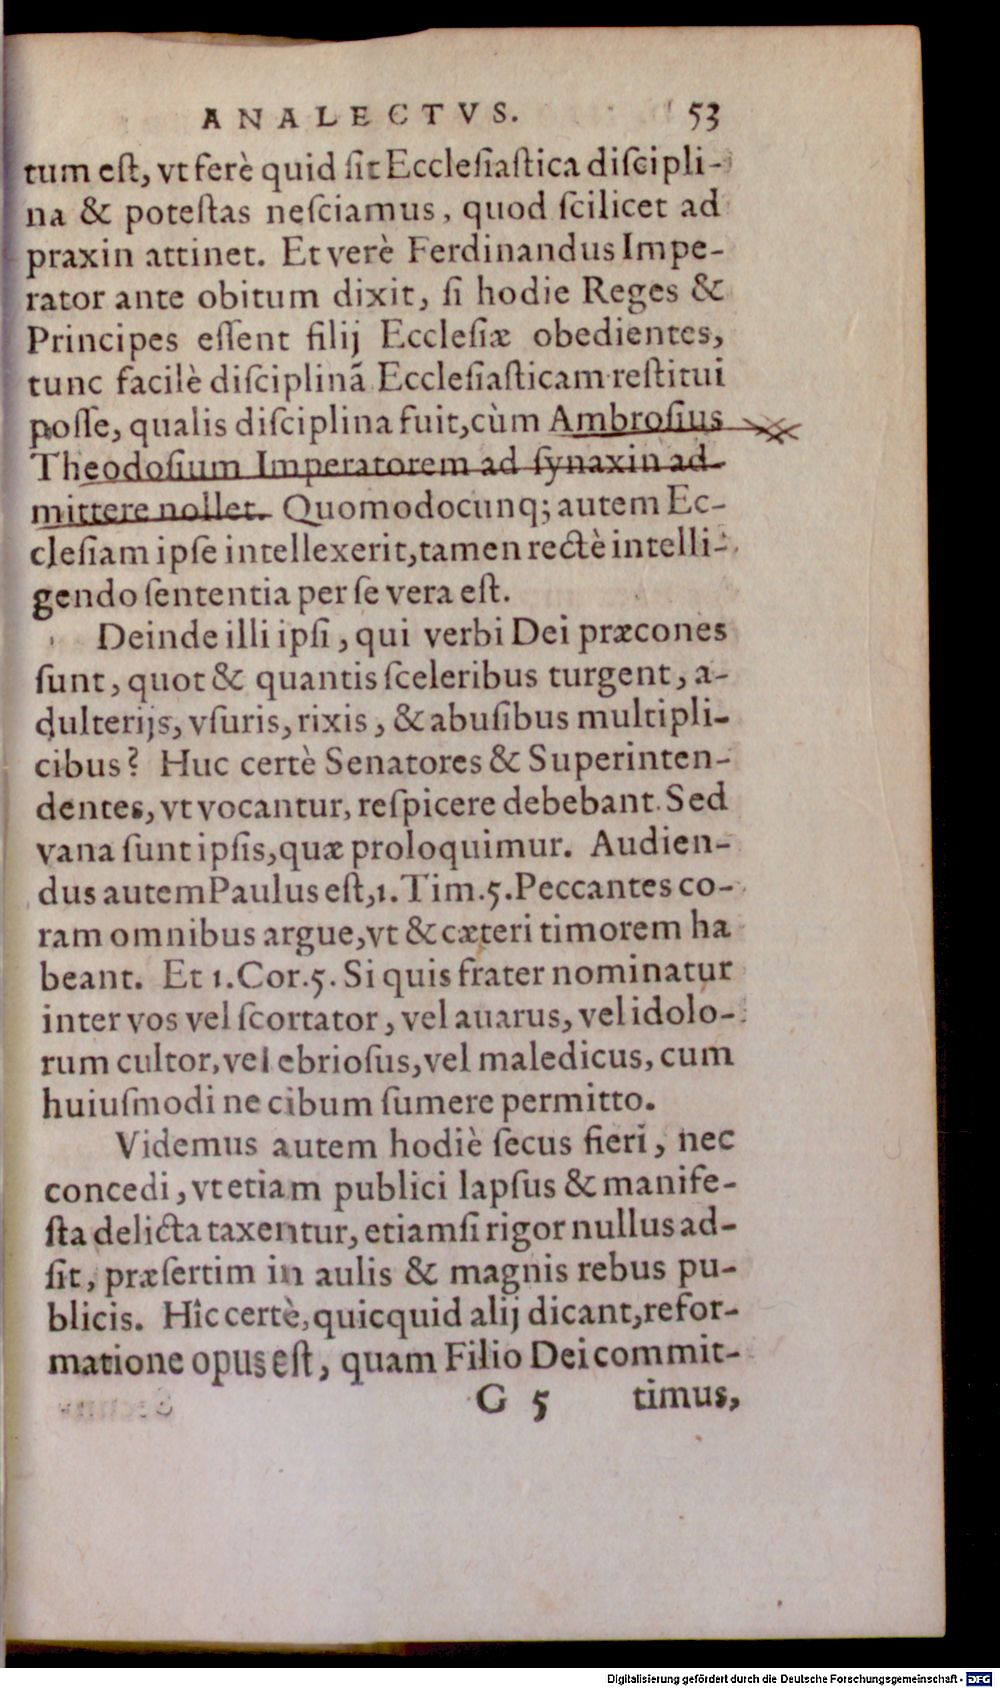 ANALECTVS. 53
tum eſt, vt ferè quid ſit Eccleſiaſtica diſcipli-
na & poteſtas neſciamus, quod ſcilicet ad
praxin attinet. Et verè Ferdinandus Impe-
rator ante obitum dixit, ſi hodie Reges &
Principes eſſent filij Eccleſiæ obedientes,
tunc facilè diſciplinã Eccleſiaſticam reſtitui
poſſe, qualis diſciplina fuit, cùm Ambroſius
Theodoſium Imperatorem ad ſynaxin ad
mittere nollet. Quomodocunq; autem Ec-
cleſiam ipſe intellexerit, tamen rectè intelli-
gendo ſententia per ſe vera eſt.
Deinde illi ipſi, qui verbi Dei præcones
ſunt, quot & quantis ſceleribus turgent, a-
dulterijs, vſuris, rixis, & abuſibus multipli-
cibus? Huc certè Senatores & Superinten-
dentes, vt vocantur, reſpicere debebant. Sed
vana ſunt ipſis, quæ proloquimur. Audien-
dus autem Paulus eſt, 1. Tim. 5. Peccantes co-
ram omnibus argue, vt & cæteri timorem ha
beant. Et 1. Cor. 5. Si quis frater nominatur
inter vos vel ſcortator, vel auarus, vel idolo-
rum cultor, vel ebrioſus, vel maledicus, cum
huiuſmodi ne cibum ſumere permitto.
Videmus autem hodiè ſecus fieri, nec
concedi, vt etiam publici lapſus & manife-
ſta delicta taxentur, etiamſi rigor nullus ad-
ſit, præſertim in aulis & magnis rebus pu-
blicis. Hîc certè, quicquid alij dicant, refor-
matione opus eſt, quam Filio Dei commit-
G 5 timus,
Digitalisierung gefördert durch die Deutsche Forschungsgemeinschaft - DFG